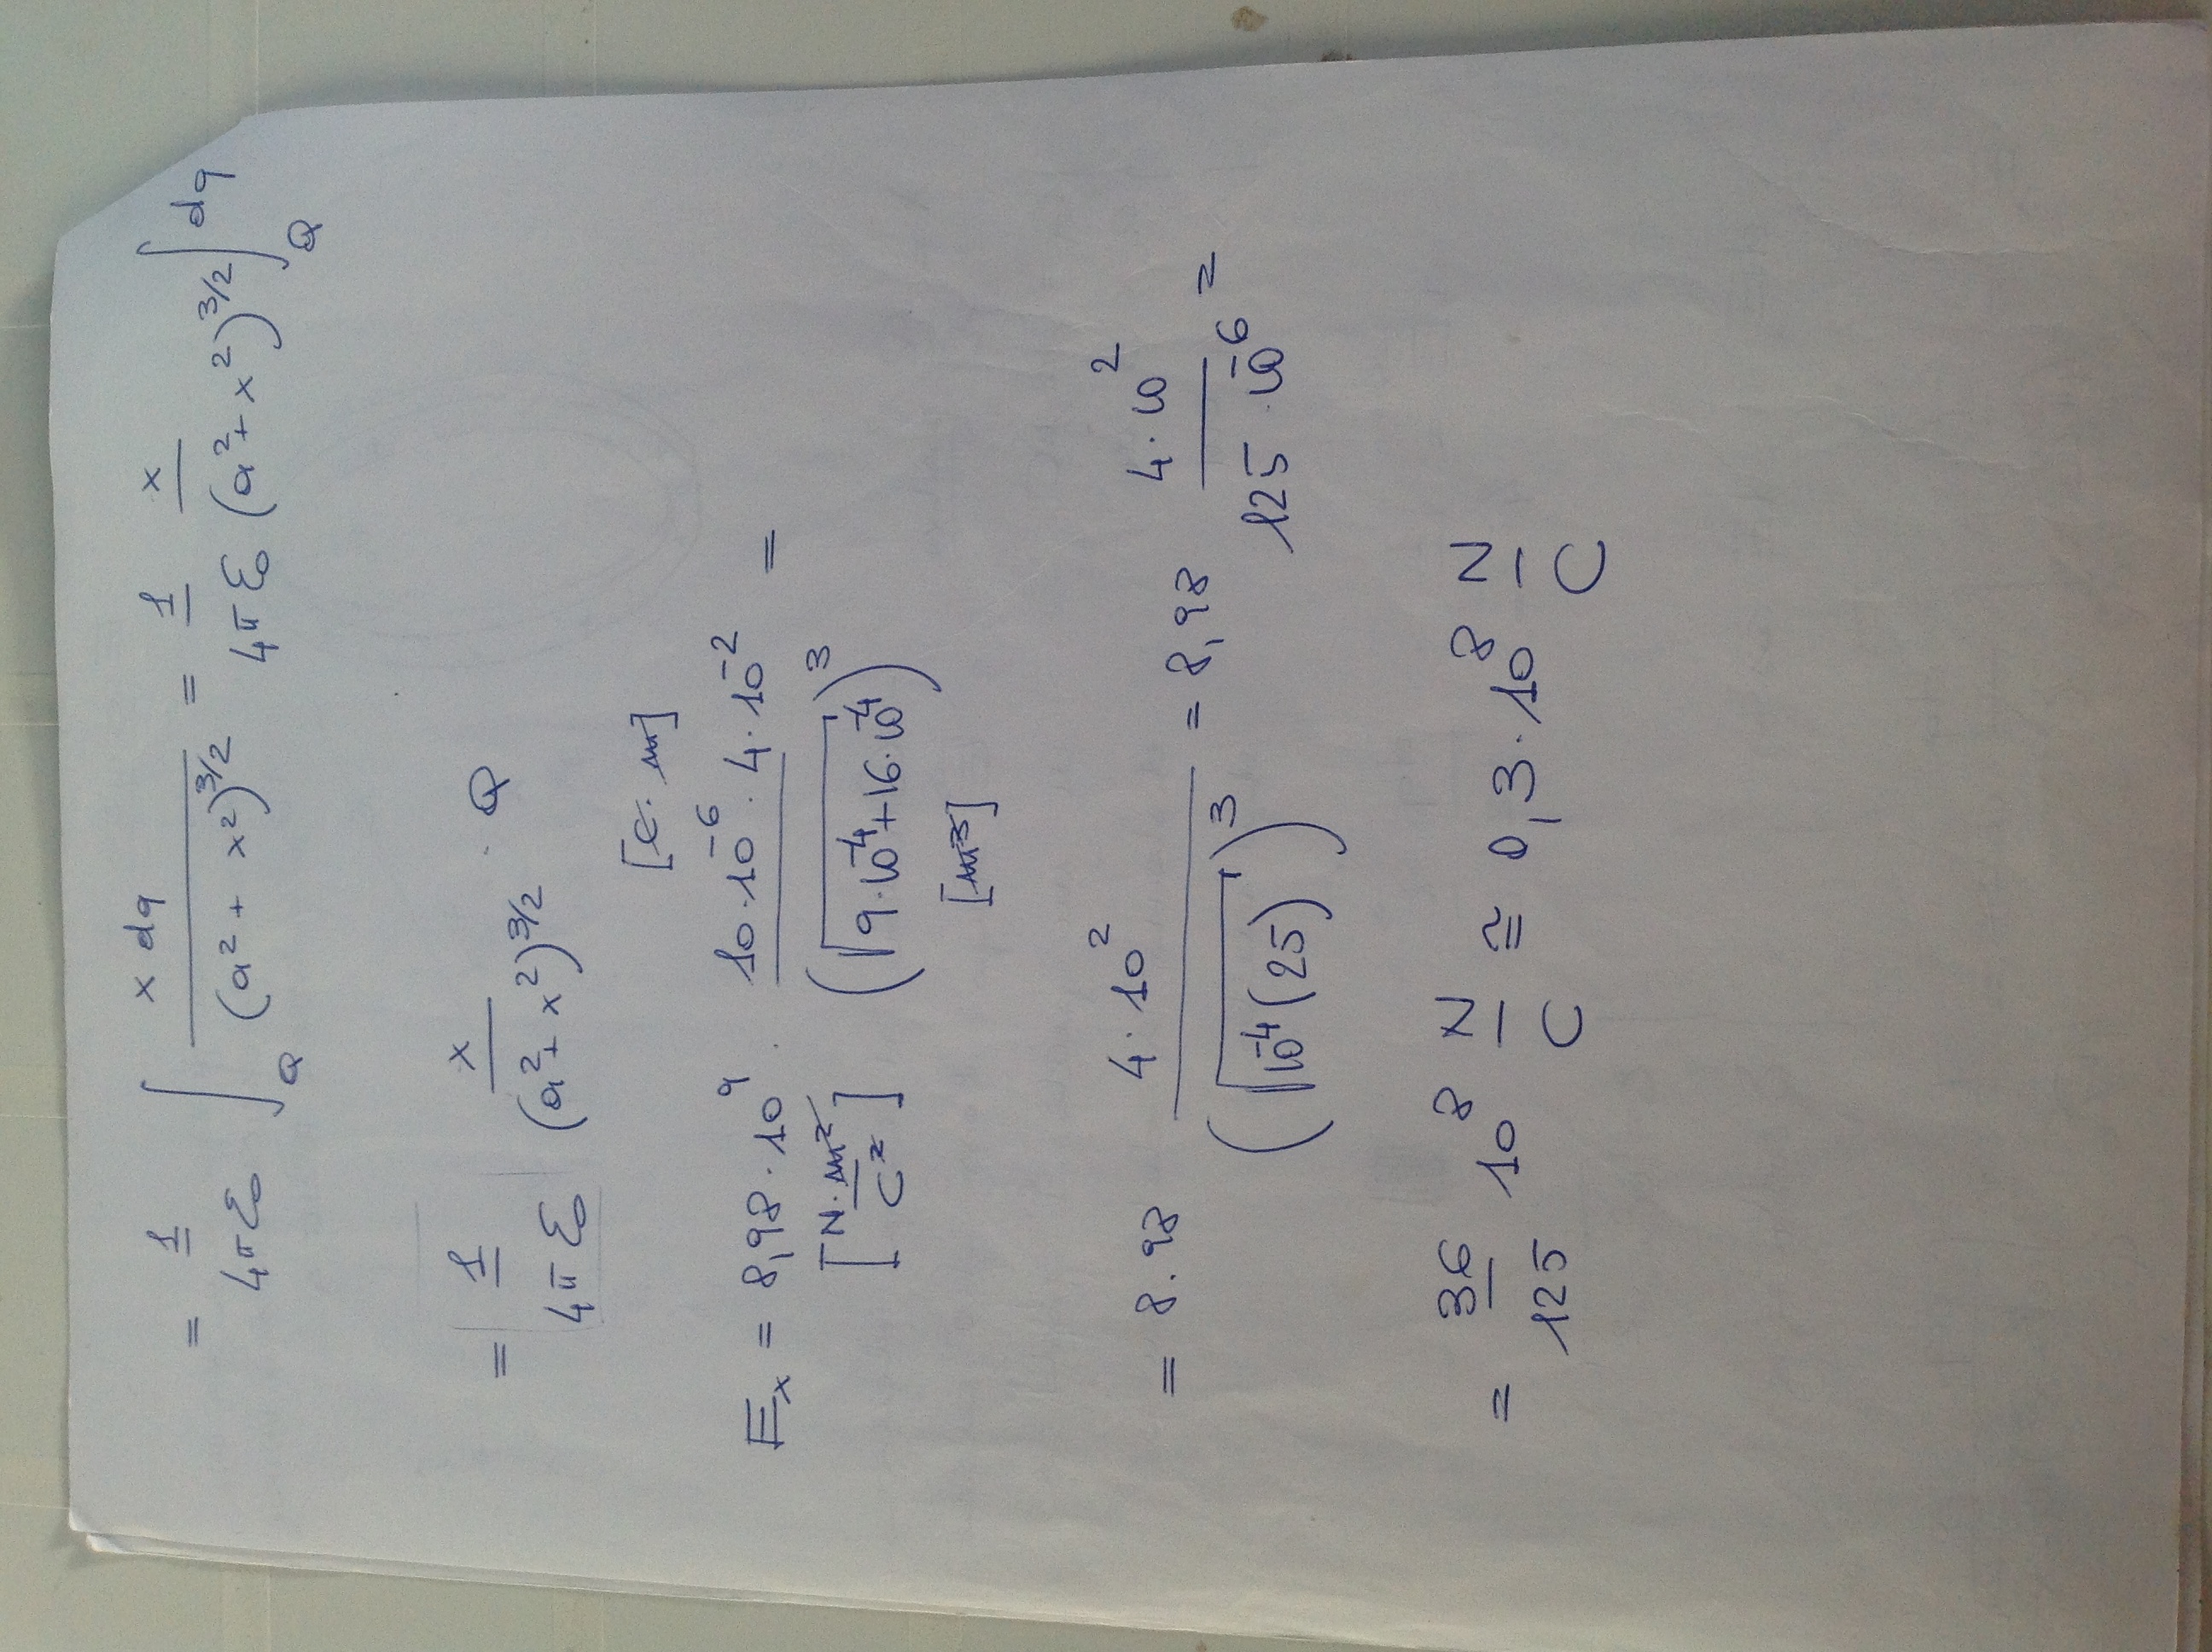 = 1/(4π ε₀) ∫_Q x dq / (a² + x²)^3/2 = 1/(4π ε₀) x/(a² + x²)^3/2 ∫_Q dq
= 1/(4π ε₀) x/(a² + x²)^3/2 · Q
[C · m]
E_x = 8,98 · 10⁹ · (10 · 10⁻⁶ · 4 · 10⁻²) / (√(9 · 10⁻⁴ + 16 · 10⁻⁴))³ =
[N · m² / C²]
[m³]
= 8.98 (4 · 10²) / (√(10⁻⁴ (25)))³ = 8,98 (4 · 10²) / (125 · 10⁻⁶) =
= 36/125 10⁸ N/C ≅ 0,3 · 10⁸ N/C